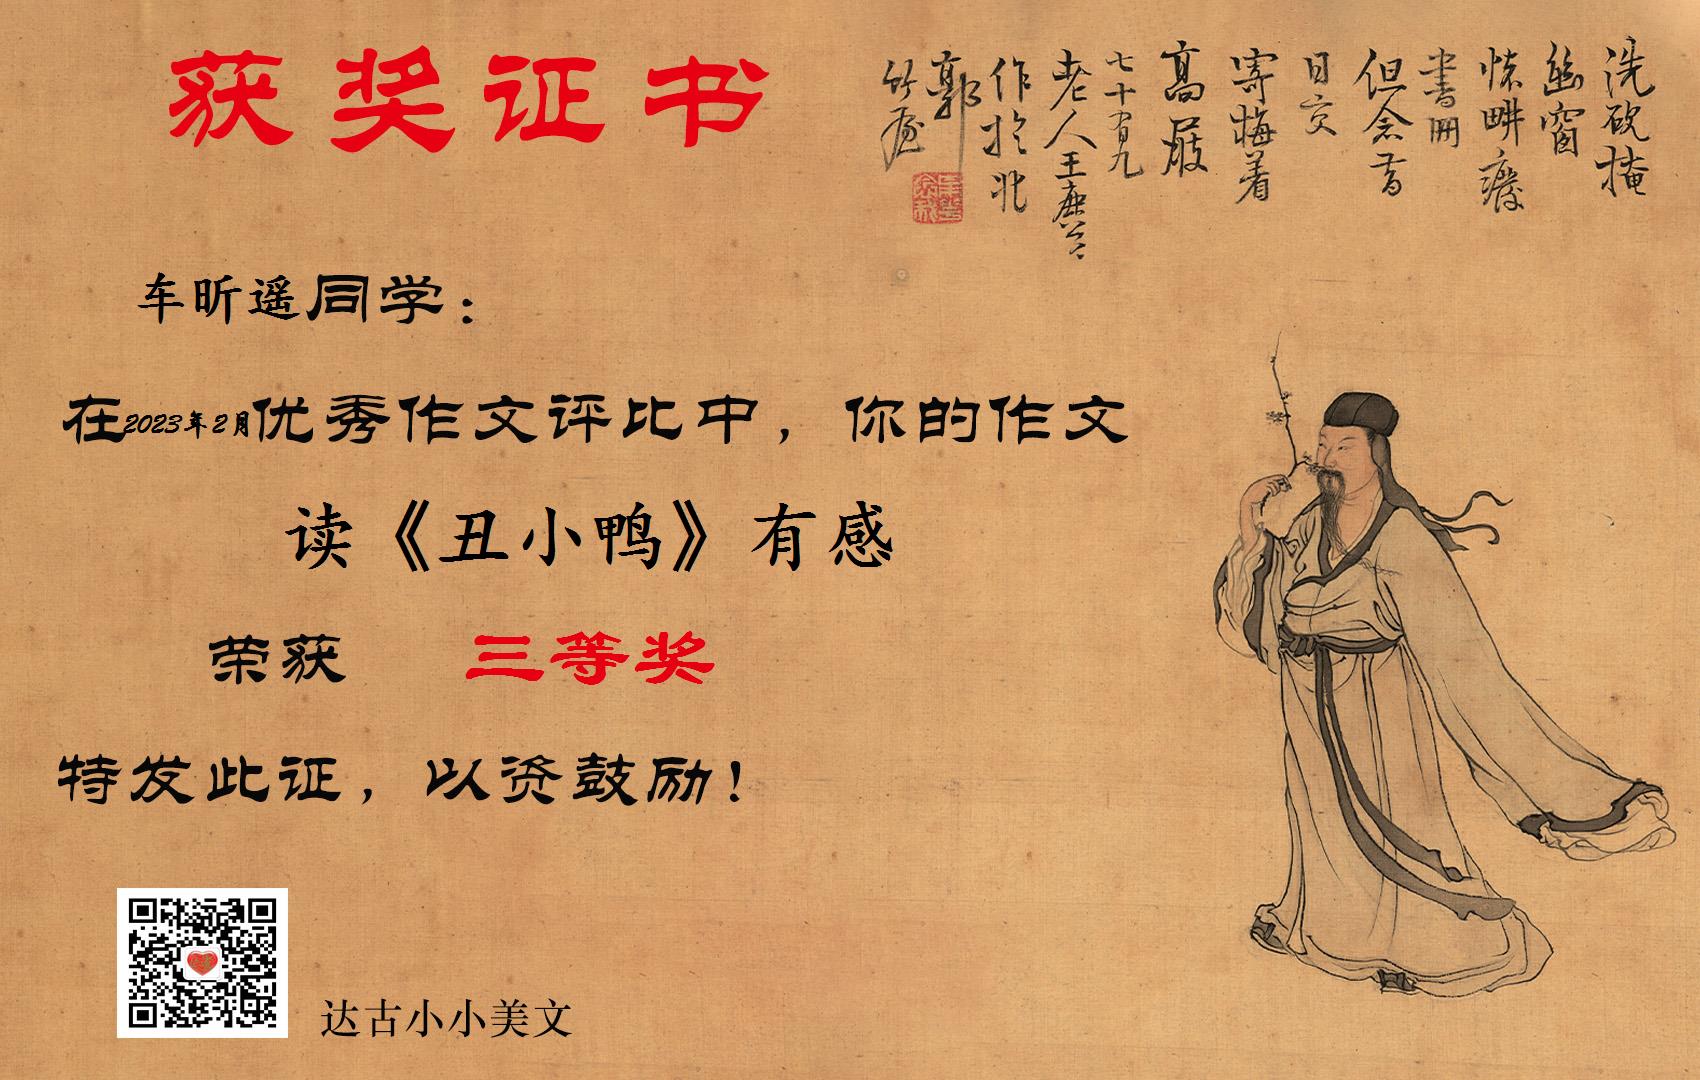 获奖证书
车昕遥同学：
在2023年2月优秀作文评比中，你的作文
读《丑小鸭》有感
荣获 三等奖
特发此证，以资鼓励！
达古小小美文
洗砚掩
幽窗
怀畊废
書冊
但念昔
日交
寄梅着
高屐
七十有九
老人王
作於北
郭
竹